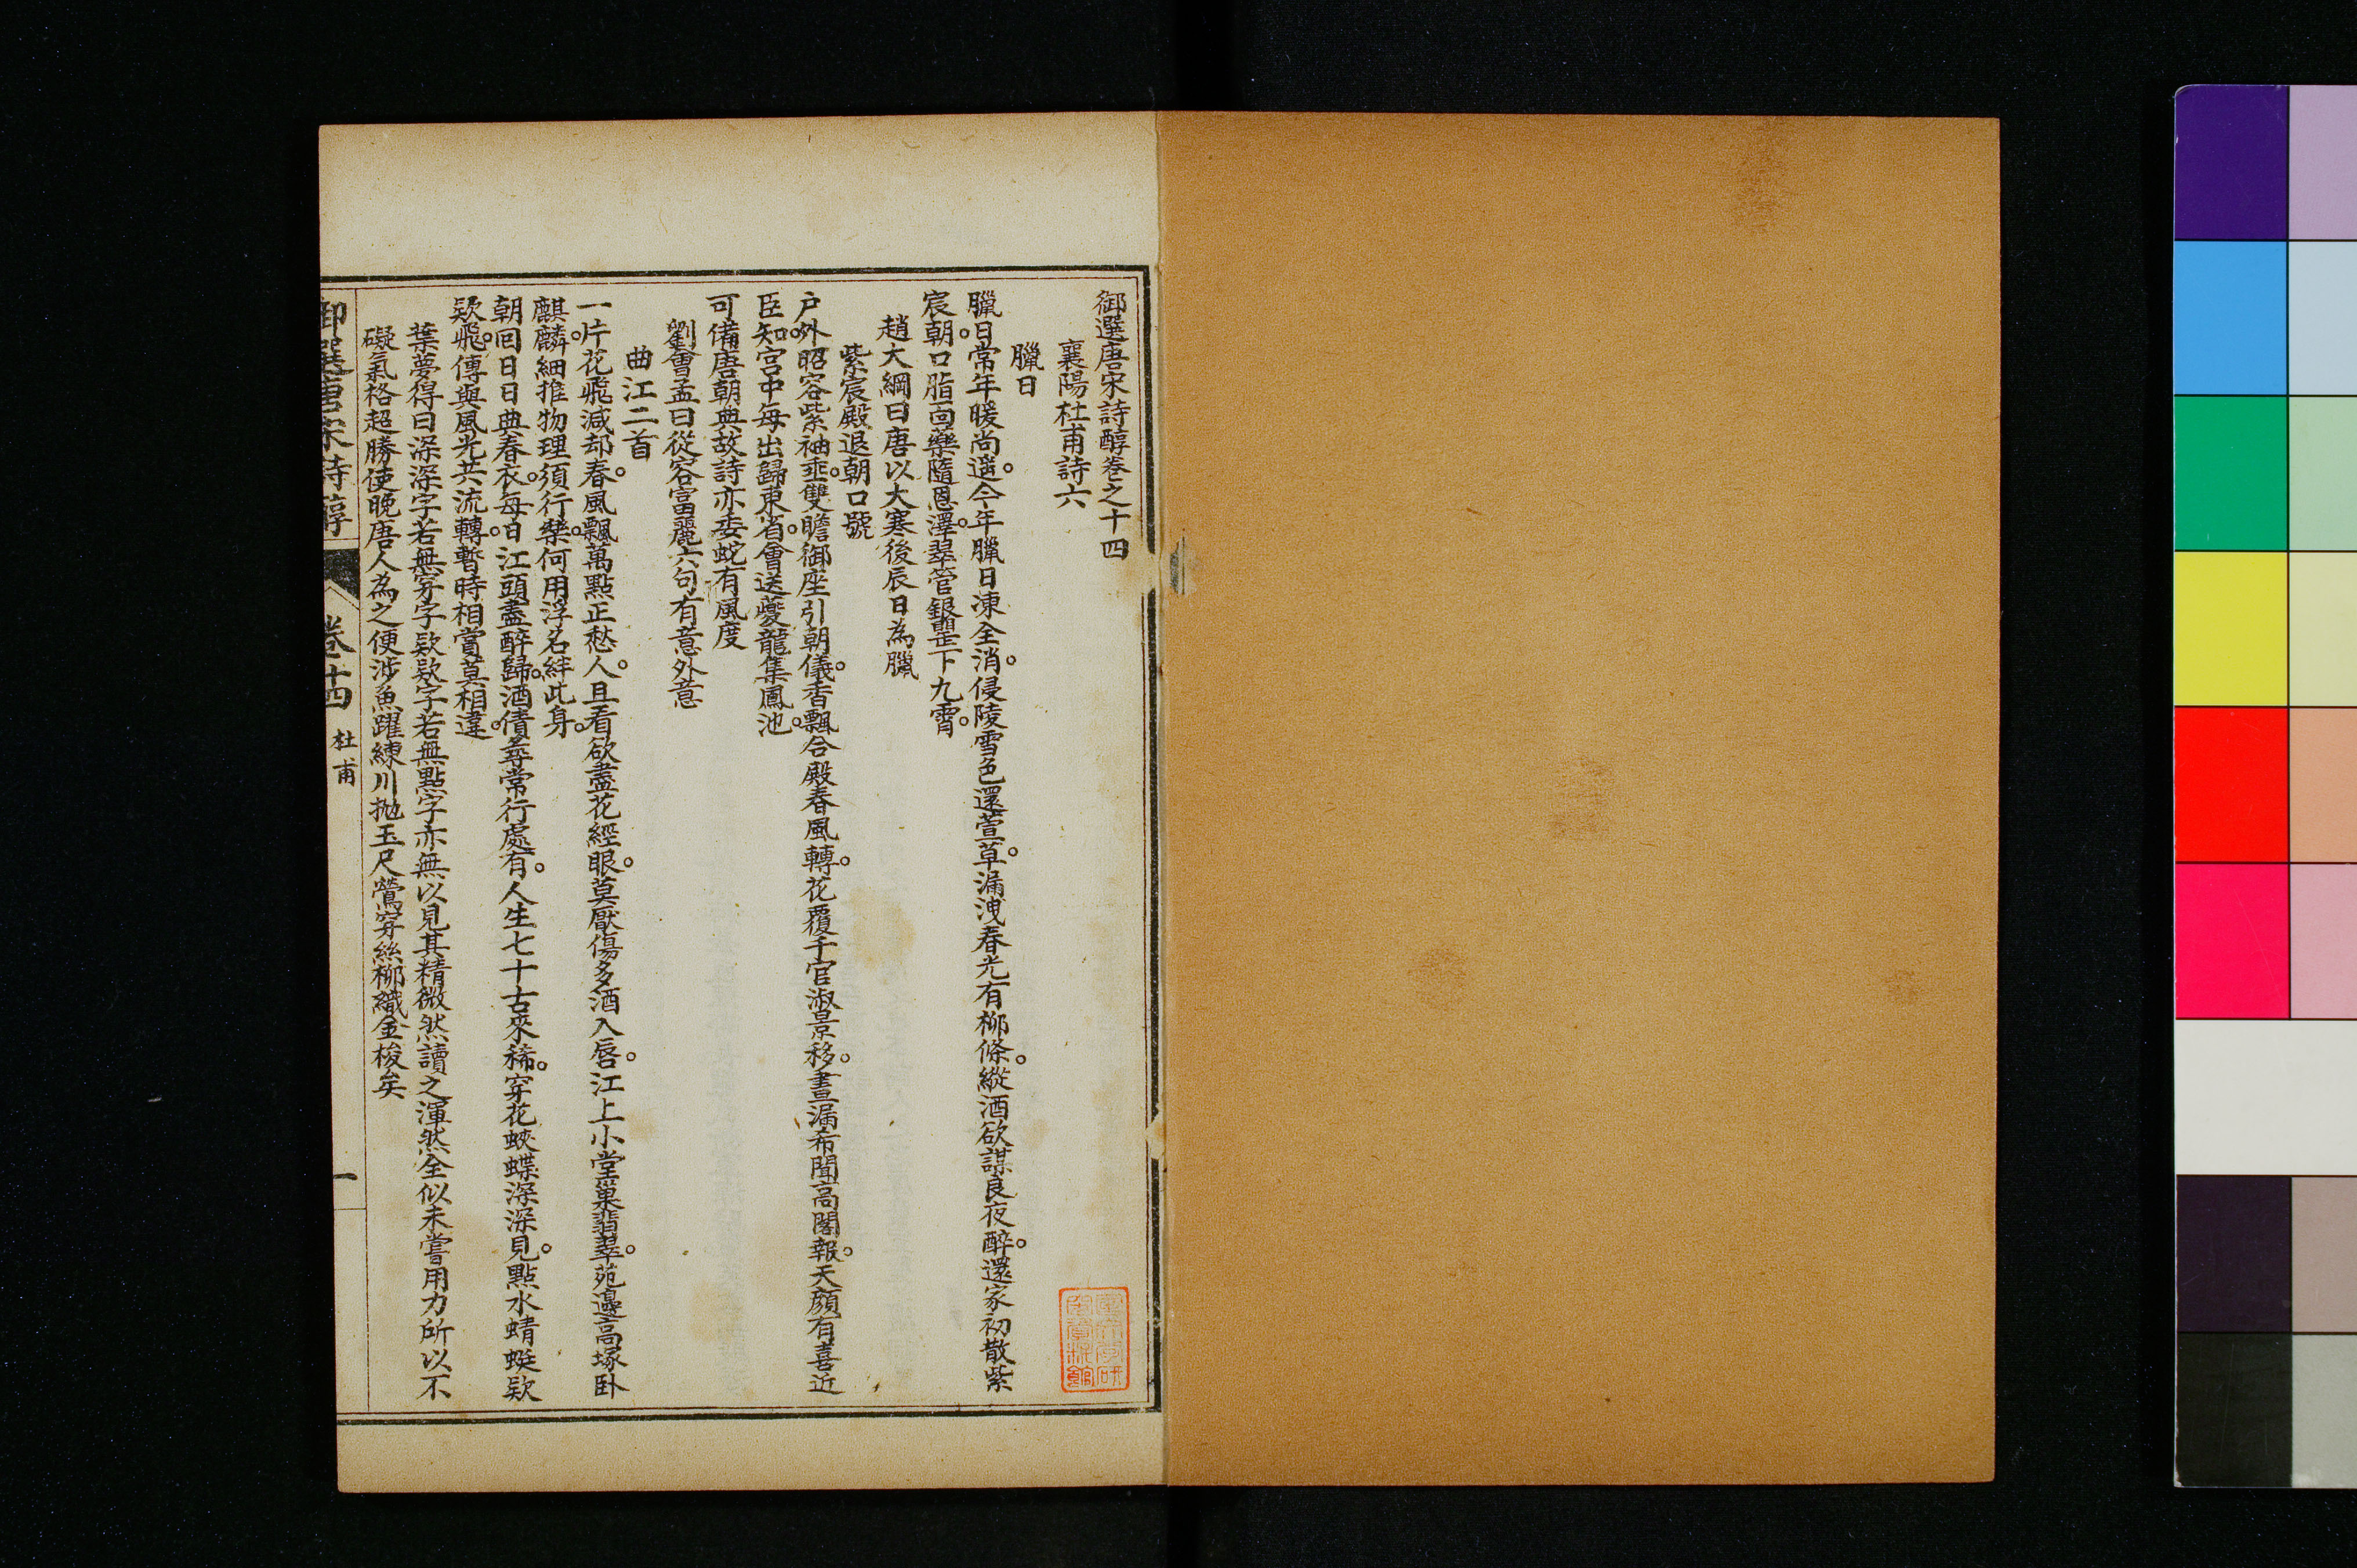 御選唐宋詩醇卷之十四
襄陽杜甫詩六
臘日
臘日常年暖尚遥。今年臘日凍全消。侵陵雪色還萱草。漏洩春光有柳條。縱酒欲謀良夜醉。還家初散紫
宸朝。口脂面藥隨恩澤。翠管銀罌下九霄。
趙大綱曰唐以大寒後辰日為臘
紫宸殿退朝口號
户外昭容紫袖垂。雙瞻御座引朝儀。香飄合殿春風轉。花覆千官淑景移。晝漏希聞高閣報。天顏有喜近
臣知。宮中每出歸東省。會送夔龍集鳳池。
可備唐朝典故詩亦委蛇有風度
劉會孟曰從容富麗六句有意外意
曲江二首
一片花飛減却春。風飄萬點正愁人。且看欲盡花經眼。莫厭傷多酒入唇。江上小堂巢翡翠。苑邊高塚卧
麒麟。細推物理須行樂。何用浮名絆此身。
朝回日日典春衣。每日江頭盡醉歸。酒債尋常行處有。人生七十古來稀。穿花蛺蝶深深見。點水蜻蜓欵
欵飛。傳與風光共流轉。暫時相賞莫相違。
葉夢得曰深深字若無穿字欵欵字若無點字亦無以見其精微然讀之渾然全似未嘗用力所以不
礙氣格超勝使晚唐人為之便涉魚躍練川拋玉尺鶯穿絲柳織金梭矣
御選唐宋詩醇
卷十四
杜甫
一